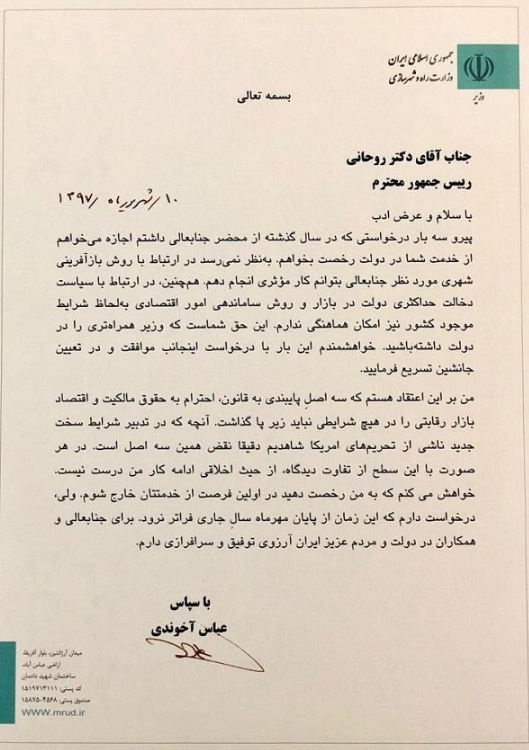 جمهوری اسلامی ایران
وزارت راه و شهرسازی
وزیر
بسمه تعالی
جناب آقای دکتر روحانی
رییس جمهور محترم
۱۰/شهریور ماه/۱۳۹۷
با سلام و عرض ادب
پیرو سه بار درخواستی که در سال گذشته از محضر جنابعالی داشتم اجازه می‌خواهم
از خدمت شما در دولت رخصت بخواهم. به‌نظر نمی‌رسد در ارتباط با روش بازآفرینی
شهری مورد نظر جنابعالی بتوانم کار مؤثری انجام دهم. هم‌چنین، در ارتباط با سیاست
دخالت حداکثری دولت در بازار و روش ساماندهی امور اقتصادی به‌لحاظ شرایط
موجود کشور نیز امکان هماهنگی ندارم. این حق شماست که وزیر همراه‌تری را در
دولت داشته‌باشید. خواهشمندم این بار با درخواست اینجانب موافقت و در تعیین
جانشین تسریع فرمایید.
من بر این اعتقاد هستم که سه اصلِ پایبندی به قانون، احترام به حقوق مالکیت و اقتصاد
بازار رقابتی را در هیچ شرایطی نباید زیر پا گذاشت. آنچه که در تدبیر شرایط سخت
جدید ناشی از تحریم‌های امریکا شاهدیم دقیقا نقض همین سه اصل است. در هر
صورت با این سطح از تفاوت دیدگاه، از حیث اخلاقی ادامه کار من درست نیست.
خواهش می کنم که به من رخصت دهید در اولین فرصت از خدمتتان خارج شوم. ولی،
درخواست دارم که این زمان از پایان مهرماه سالِ جاری فراتر نرود. برای جنابعالی و
همکاران در دولت و مردم عزیز ایران آرزوی توفیق و سرافرازی دارم.
با سپاس
عباس آخوندی
میدان آرژانتین، بلوار آفریقا،
اراضی عباس آباد،
ساختمان شهید دادمان
کد پستی: ۱۵۱۹۷۱۳۱۱۱
صندوق پستی: ۴۵۶۸-۱۵۸۷۵
www.mrud.ir